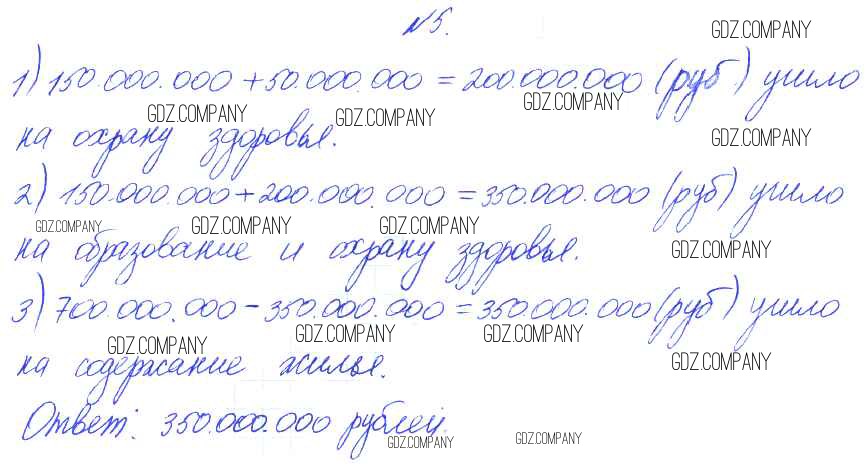 №5.
GDZ.COMPANY
1) 150.000.000 + 50.000.000 = 200.000.000 (руб) ушло
GDZ.COMPANY GDZ.COMPANY GDZ.COMPANY
на охрану здоровья.
GDZ.COMPANY
2) 150.000.000 + 200.000.000 = 350.000.000 (руб) ушло
GDZ.COMPANY GDZ.COMPANY GDZ.COMPANY
на образование и охрану здоровья.
GDZ.COMPANY
3) 700.000.000 - 350.000.000 = 350.000.000 (руб) ушло
GDZ.COMPANY GDZ.COMPANY GDZ.COMPANY
на содержание жилья.
GDZ.COMPANY
Ответ: 350.000.000 рублей.
GDZ.COMPANY GDZ.COMPANY